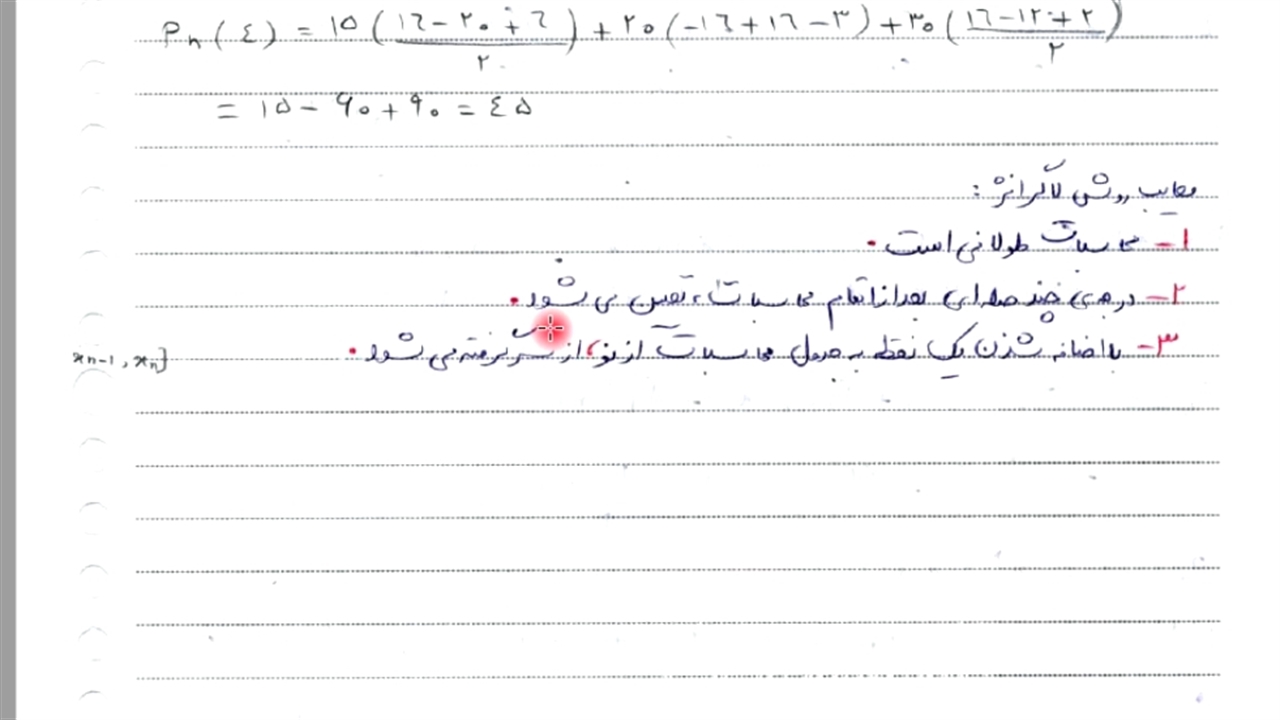 Pₙ(٤) = ١٥ (١٦ - ٢٠ + ٦ / ٢) + ٢٠ (-١٦ + ١٦ - ٣) + ٣٠ (١٦ - ١٢ + ٢ / ٢)
= ١٥ - ٦٠ + ٩٠ = ٤٥
معایب روش لاگرانژ :
١- محاسبات طولانی است.
٢- درجه‌ی چند جمله‌ای بعد از اتمام محاسبات، تعیین می شود.
٣- با اضافه شدن یک نقطه به جدول محاسبات از نو، از سر گرفته می شود.
xₙ₋₁ , xₙ]